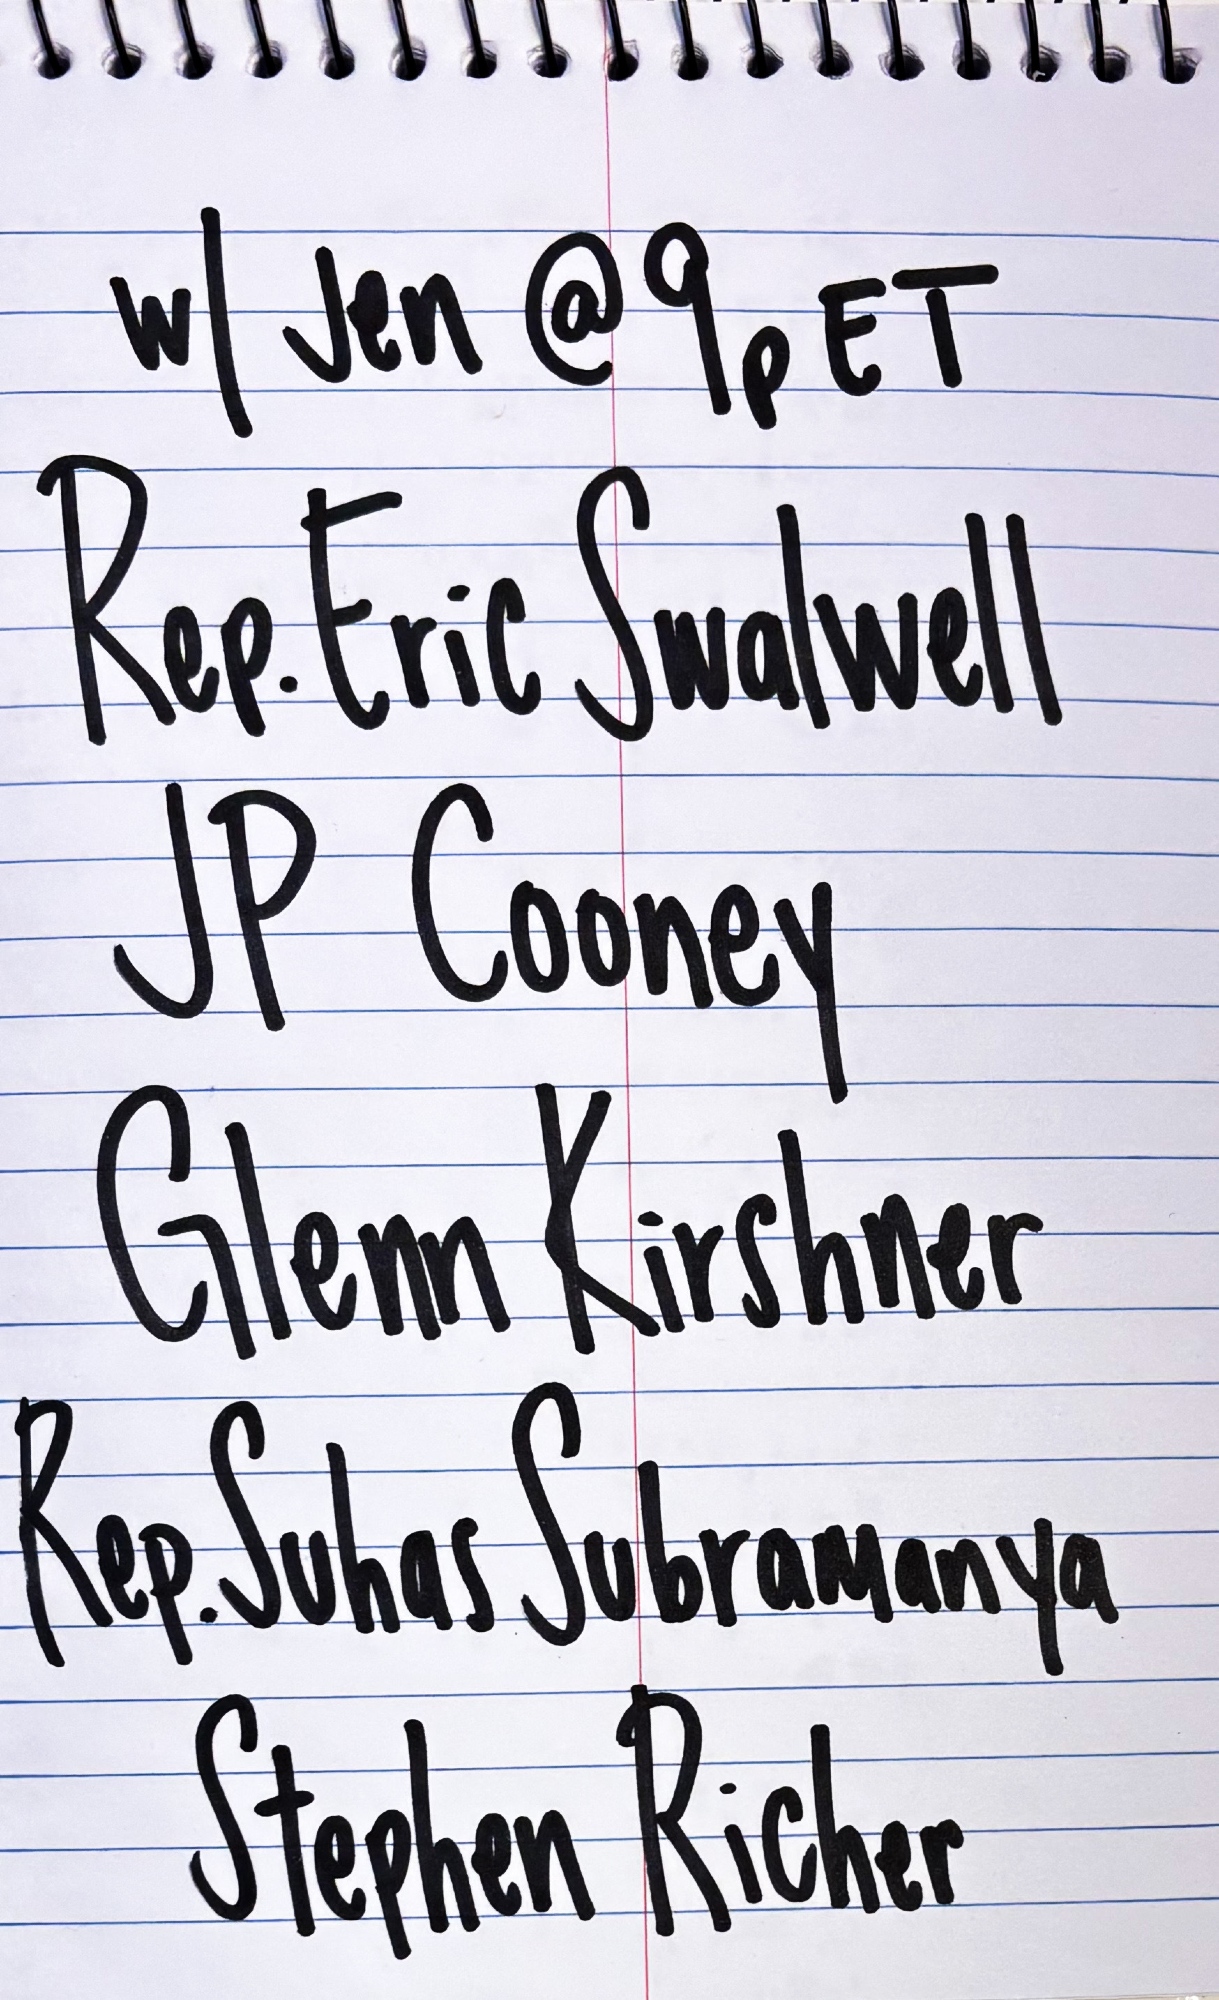 w/ Jen @ 9pET
Rep. Eric Swalwell
JP Cooney
Glenn Kirshner
Rep. Suhas Subramanya
Stephen Richer